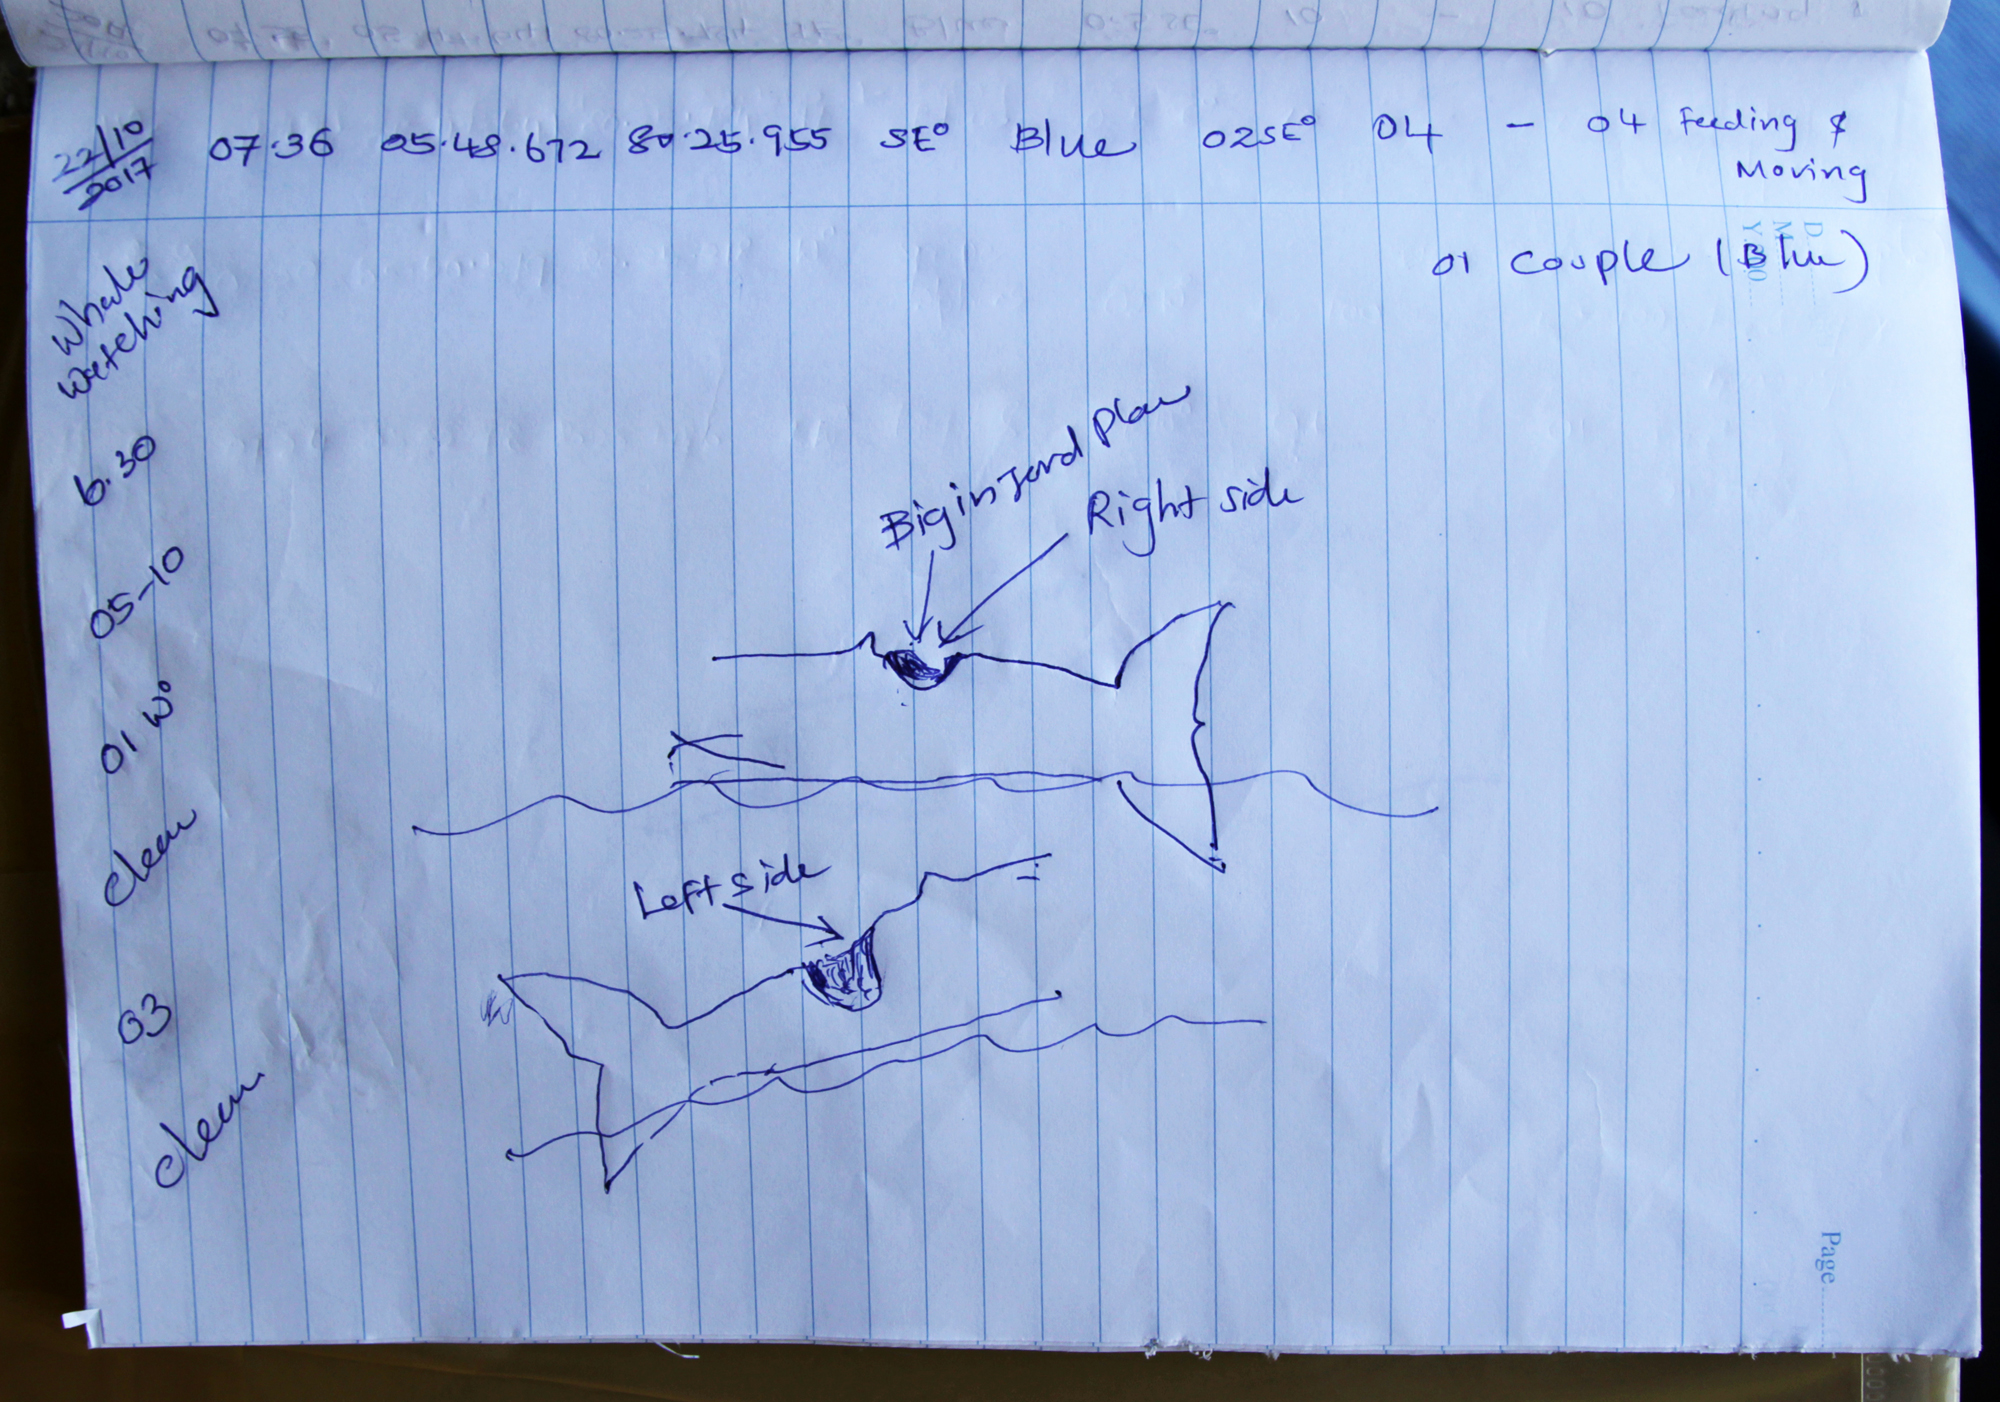 22/10
2017
07.36 05.48.672 80.25.955 SE° Blue 02SE° 04 - 04 Feeding &
Moving
01 Couple (Blue)
Whale
watching
6.30
05-10
01 W°
Clear
03
Clear
Big injard place
Right side
Left side
D
M
Y
Page